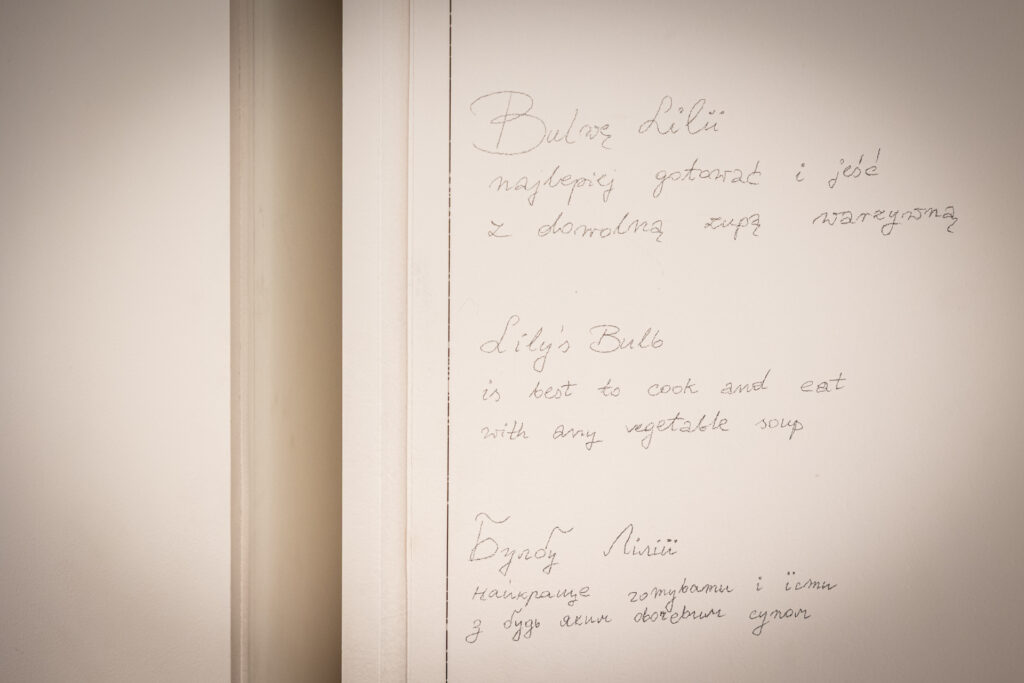 Bulwę Lilii
najlepiej gotować i jeść
z dowolną zupą warzywną
Lily's Bulb
is best to cook and eat
with any vegetable soup
Бульбу Лілії
найкраще готувати і їсти
з будь яким овочевим супом